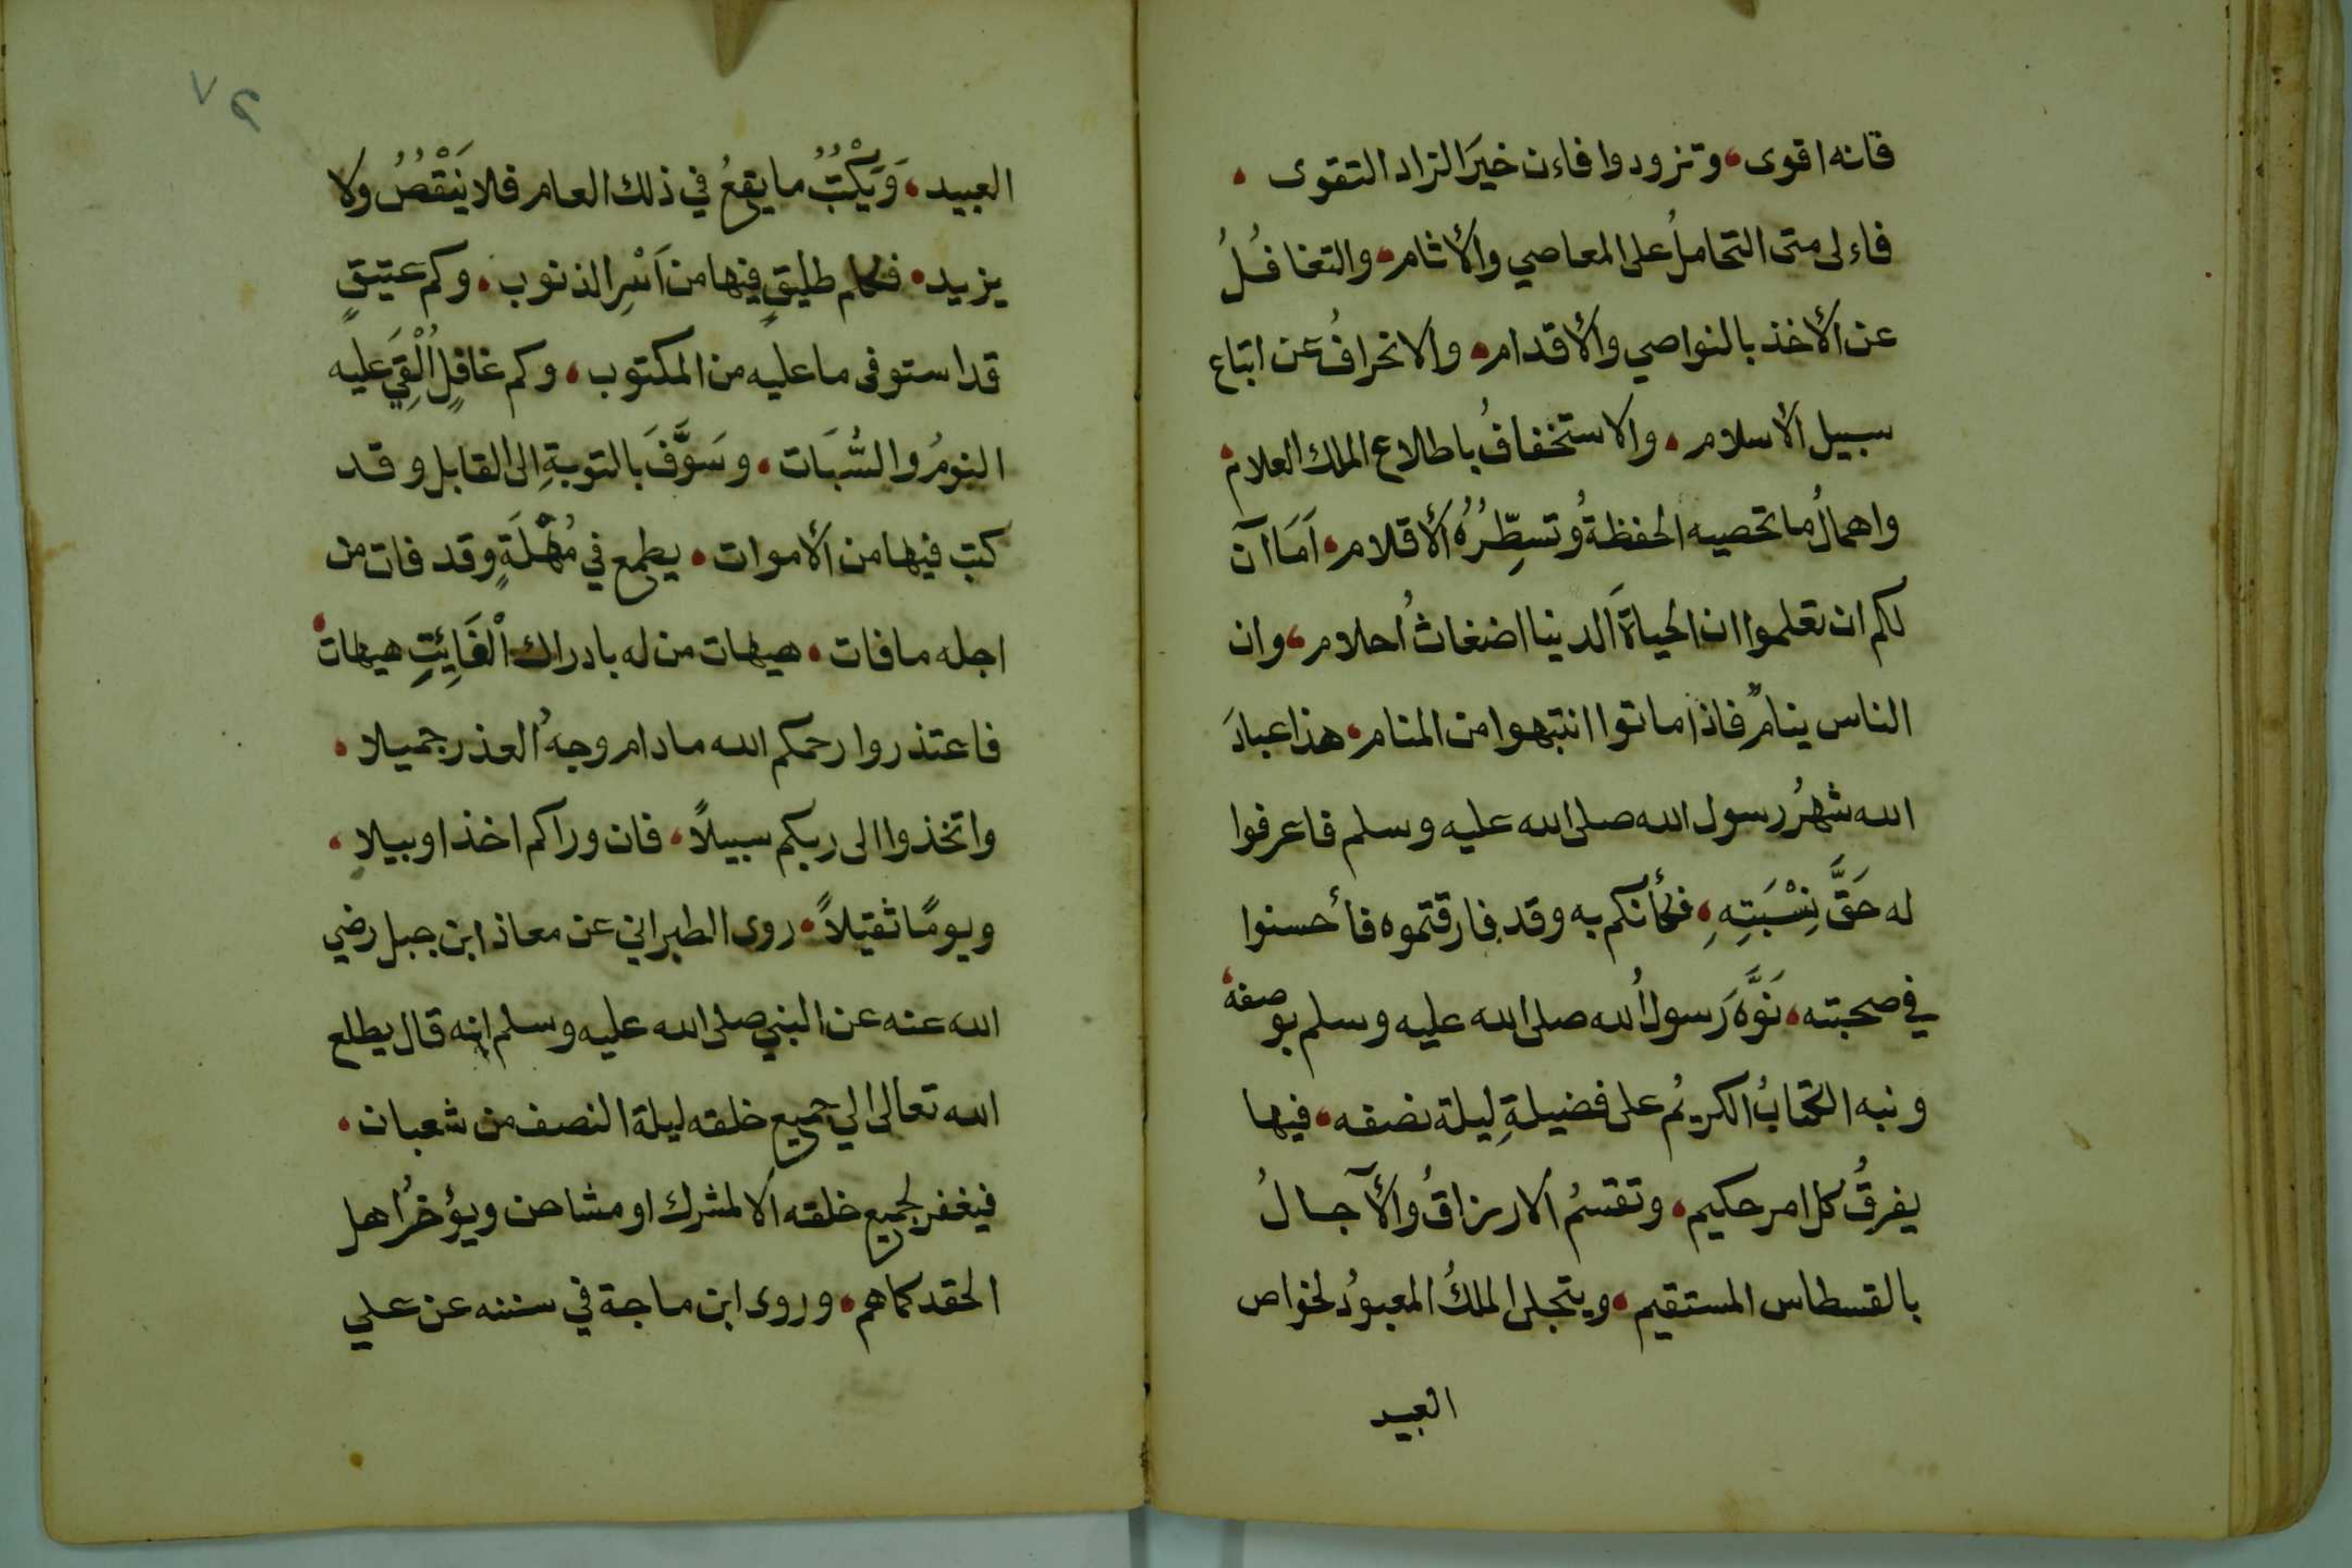 فانه اقوى، وتزودوا فاءن خيَر الزاد التقوى ،
فاءلى متى التحاملُ على المعاصي والأثام، والتغافُلُ
عن الأخذ بالنواصي والأقدام، والانحرافُ عن اتباع
سبيل الأسلام، والاستخفافُ باطلاع الملك العلام،
واهمالُ ما تحصيه الحفظةُ وتسطِّرُهُ الأقلام، اَمَا آن
لكم ان تعلموا ان الحياةَ الدينا اضغاثُ احلام، وان
الناس ينامٌ فاذا ماتوا انتبهوا من المنام، هذا عبادَ
الله شهرُ رسول الله صلى الله عليه وسلم فاعرفوا
له حَقَّ نِسْبَتِهِ، فكأنكم به وقد فارقتموه فأحسنوا
في صحبته، نَوَّهَ رَسولُ الله صلى الله عليه وسلم بوصفه،
ونبه الكتابُ الكريمُ على فضيلةِ ليلة نصفه، فيها
يفرقُ كل امر حكيم، وتقسمُ الارزاقُ والآجالُ
بالقسطاس المستقيم، ويتجلى الملكُ المعبودُ لخواص
العبيد
٧٩
العبيد، وَيَكْتُبُ ما يقعُ في ذلك العام فلا يَنْقُصُ ولا
يزيد، فكم طليقٍ فيها من اَسْرِ الذنوب، وكم عتيقٍ
قد استوفى ما عليه من المكتوب، وكم غافلٍ اُلْقِيَ عليه
النومُ والسُّبَات، وسَوَّفَ بالتوبةِ الى القابل وقد
كتب فيها من الأموات، يطمع في مُهْلَةٍ وقد فات من
اجله ما فات، هيهات من له بادراك الْفَايِئتِ هيهات،
فاعتذروا رحمكم الله مادام وجهُ العذر جميلا،
واتخذوا الى ربكم سبيلاً، فان وراكم اخذا وبيلا،
ويومًا ثقيلاً، روى الطبراني عن معاذ ابن جبل رضي
الله عنه عن النبي صلى الله عليه وسلم انه قال يطلع
الله تعالى الي جميع خلقه ليلة النصف من شعبان،
فيغفر لجميع خلقه الا لمشرك او مشاحن ويؤخرُ اهل
الحقد كماهم، وروى ابن ماجة في سننه عن علي